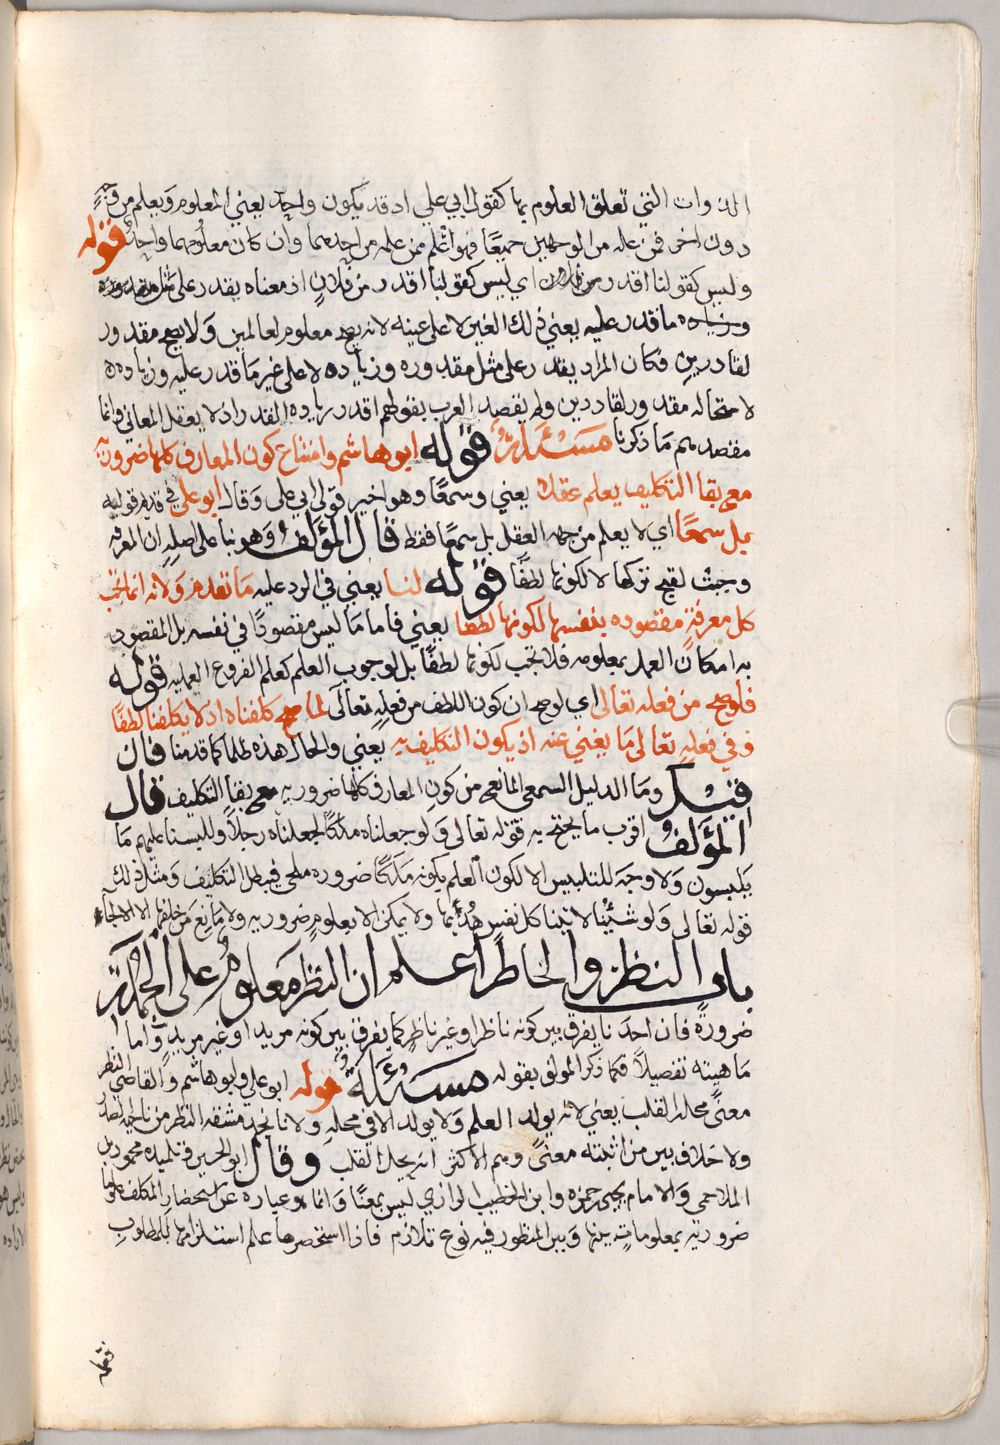 الذوات التي تعلق العلوم بها كقول ابي علي اذ قد يكون واحد يعني المعلوم ويعلم من وجه
دون اخر فمن علمه من الوجهين جميعًا فهو اعلم ممن علمه من احدهما وان كان معلومهما واحدًا قوله
وليس كقولنا اقدر من فلان اي ليس كقولنا اقدر من فلان اذ معناه يقدر على مثل مقدوره
وزياده ما قدر عليه يعني ذلك الغير لا على عينه لانه يصح معلوم لعالمين ولا يصح مقدور
لقادرين فكان المراد يقدر على مثل مقدوره وزياده لا على غير ما قدر عليه وزياده
لاستحاله مقدور لقادرين ولم يقصد العرب بقولهم اقدر زياده القدر اذ لا يعقل المعاني وانما
مقصدهم ما ذكرنا مسئلة قوله ابو هاشم وامتناع كون المعارف كلها ضرورية
مع بقا التكليف يعلم عقلا يعني وسمعًا وهو اخير قولي ابي علي وقال ابو علي في قديم قوليه
بل سمعًا اي لا يعلم من جهه العقل بل سمعًا فقط قال المؤلف وهو بنا على اصله ان المعرفه
وجبت لقبح تركها لا لكونها لطفًا قوله لنا يعني في الرد عليه ما تقدم ولانه انما تجب
كل معرفة مقصوده بنفسها لكونها لطفا يعني فاما ما ليس مقصودًا في نفسه بل المقصود
به امكان العمل بمعلومه فلا تجب لكونها لطفًا بل لوجوب العلم كعلم الفروع العمليه قوله
فلو صح من فعله تعالى اي لو صح ان كون اللطف من فعله تعالى لما صح كلفناه اذ لا يكلفنا لطفًا
وفي فعله تعالى ما يغني عنه اذ يكون التكليف به يعني والحال هذه ظلما كما قدمنا فان
قيل وما الدليل السمعي المانع من كون المعارف كلها ضروريه مع بقا التكليف قال
المؤلف اقرب ما يحتج به قوله تعالى ولو جعلناه ملكًا لجعلناه رجلًا وللبسنا عليهم ما
يلبسون ولا وجه للتلبيس الا لكون العلم بكونه ملكًا ضروره ملجي فيبطل التكليف ومثل ذلك
قوله تعالى ولو شئنا لاتينا كل نفس هداها ولا يمكن الا بعلوم ضروريه ولا مانع من خلقها الا الالجاء
باب النظر والخاطر اعلم ان النظر معلوم على الجملة
ضرورة فان احدنا يفرق بين كونه ناظرا وغير ناظر كما يفرق بين كونه مريدا وغير مريد واما
ماهيته تفصيلًا فكما ذكر المولف بقوله مسئلة قوله ابو علي وابو هاشم والقاضي النظر
معنًى محله القلب يعني لانه يولد العلم ولا يولد الا في محله ولانا نجد مشقه النظر من ناحية الصدر
ولا خلاف بين من اثبته معنًى وهم الاكثر انه يحل القلب وقال ابو الحسين وتلميذه محمود بن
الملاحمي والامام يحيى بن حمزه وابن الخطيب الرازي ليس بمعنًا وانما هو عباره عن استحضار المكلف علوما
ضرورية بمعلومات بينها وبين المنظور فيه نوع تلازم فاذا استحضرها علم استلزامها للمطلوب